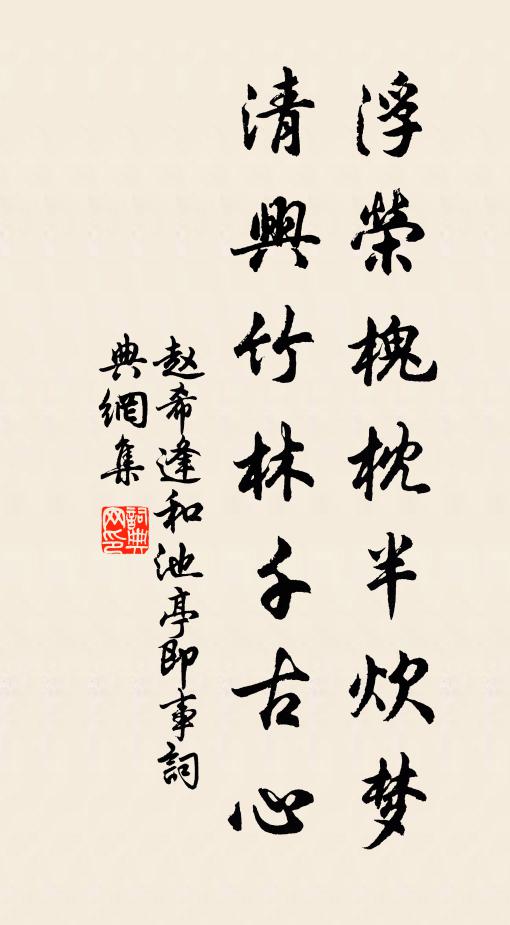 浮榮槐枕半炊梦
清興竹林千古心
赵希逢和池亭即事詞
典網集
詞典网印